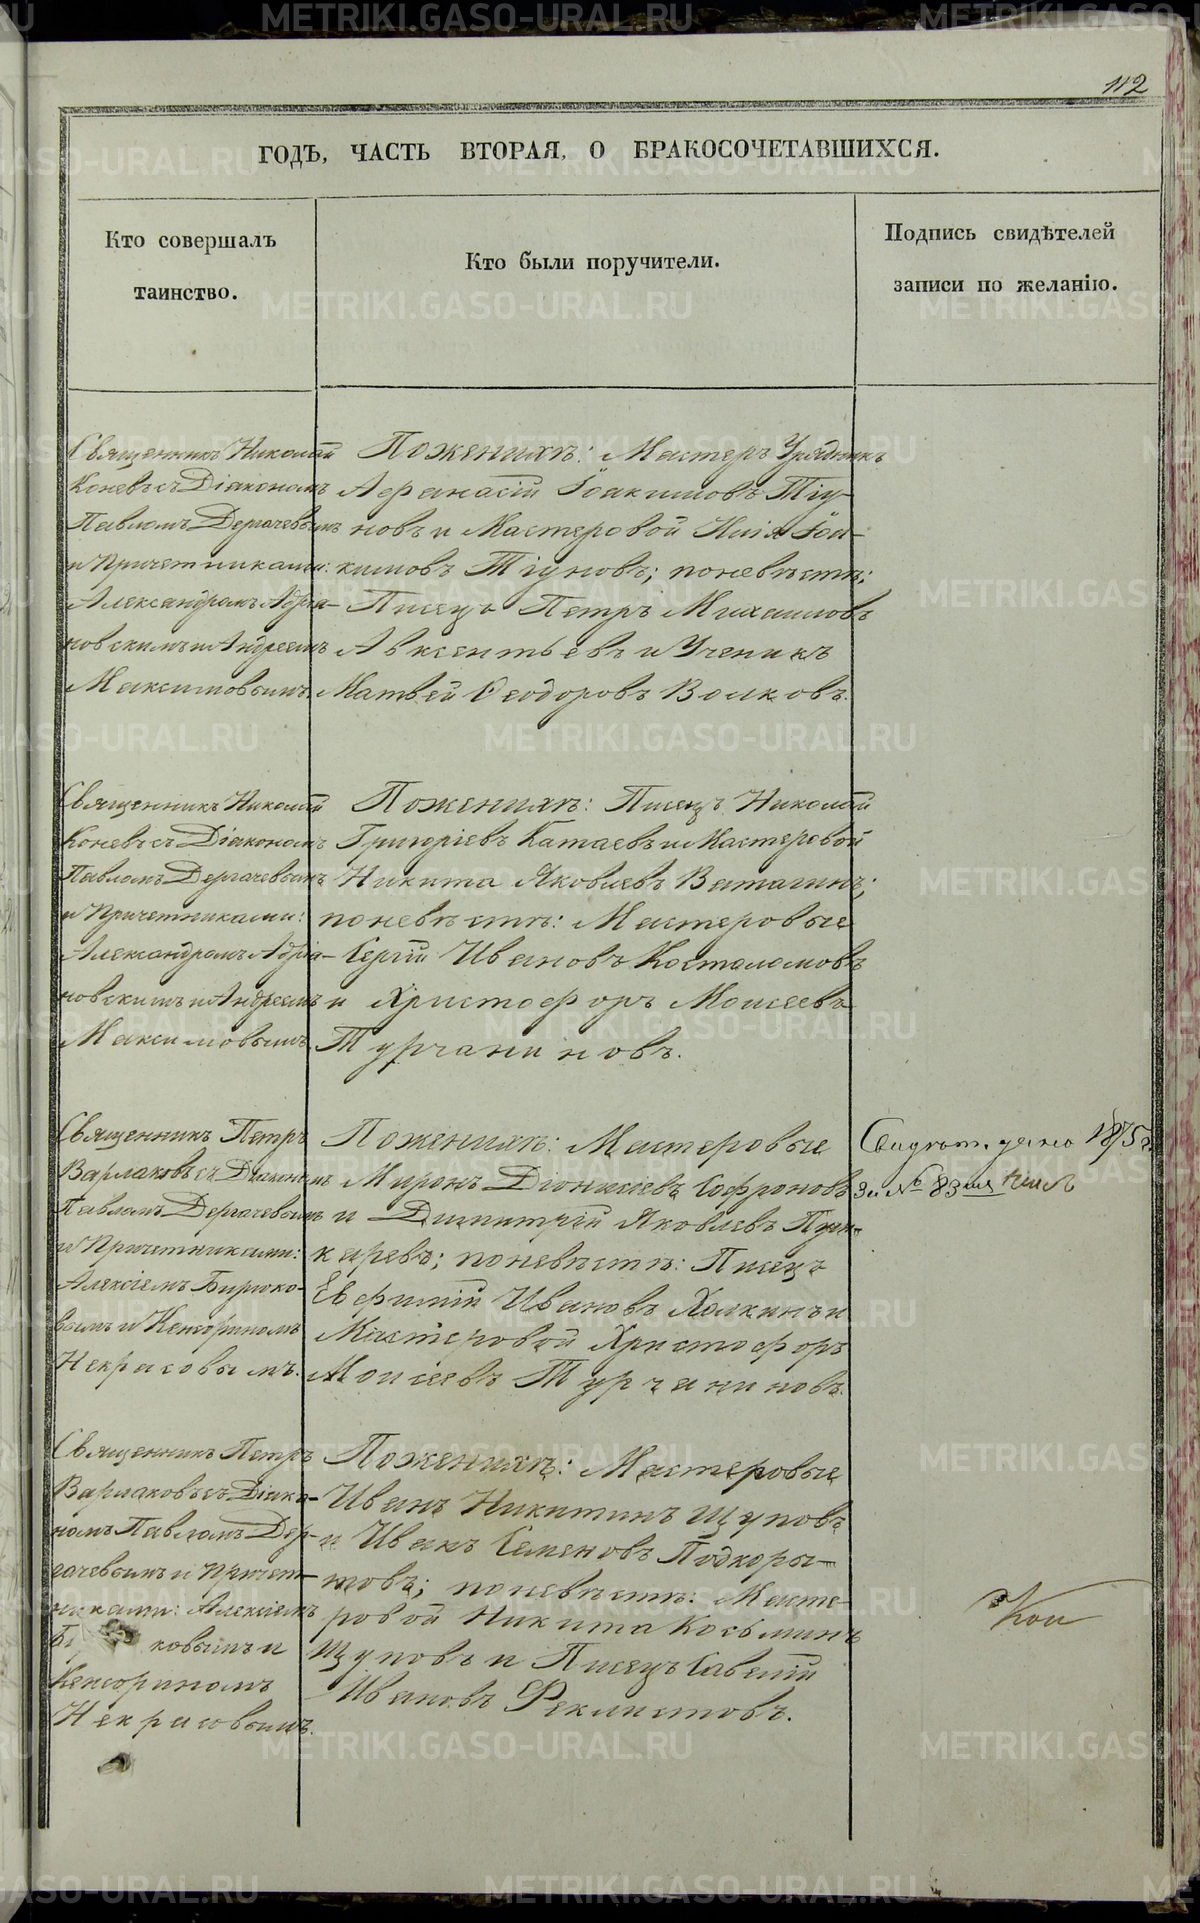 112
ГОДЪ, ЧАСТЬ ВТОРАЯ, О БРАКОСОЧЕТАВШИХСЯ.
Кто совершалъ
таинство.
Кто были поручители.
Подпись свидѣтелей
записи по желанію.
Священникъ Николай
Коневъ съ Діакономъ
Павломъ Дергачевымъ
и Причетниками:
Александромъ Адріа-
новскимъ и Андреемъ
Максимовымъ.
Поженихѣ: Мастеръ Урядникъ
Афанасій Іоакимовъ Тіу-
новъ и Мастеровой Илія Іоа-
кимовъ Тіуновъ; поневѣстѣ:
Писецъ Петръ Михаиловъ
Авксентьевъ и Ученикъ
Матвей Ѳеодоровъ Волковъ.
Священникъ Николай
Коневъ съ Діакономъ
Павломъ Дергачевымъ
и Причетниками:
Александромъ Адріа-
новскимъ и Андреемъ
Максимовымъ.
Поженихѣ: Писецъ Николай
Григоріевъ Катаевъ и Мастеровой
Никита Яковлевъ Ватагинъ;
поневѣстѣ: Мастеровые
Сергій Ивановъ Костоломовъ
и Христофоръ Моисеевъ
Турчаниновъ.
Священникъ Петръ
Варлаковъ съ Діакономъ
Павломъ Дергачевымъ
и Причетниками:
Алексіемъ Бирюко-
вымъ и Кенсориномъ
Некрасовымъ.
Поженихѣ: Мастеровые
Миронъ Діонисіевъ Софроновъ
и Димитрій Яковлевъ Пуш-
каревъ; поневѣстѣ: Писецъ
Евфимій Ивановъ Халкинъ и
Мастеровой Христофоръ
Моисеевъ Турчаниновъ.
Свидѣт. дано 1875 г.
За № 83
Священникъ Петръ
Варлаковъ съ Діако-
номъ Павломъ Дер-
гачевымъ и Причет-
никами: Алексіемъ
ковымъ и
Кенсориномъ
Некрасовымъ.
Поженихѣ: Мастеровые
Иванъ Никитинъ Щуповъ
и Иванъ Семеновъ Подкоры-
товъ; поневѣстѣ: Масте-
ровой Никита Косьминъ
Щуповъ и Писецъ Савелій
Ивановъ Феклистовъ.
METRIKI.GASO-URAL.RU